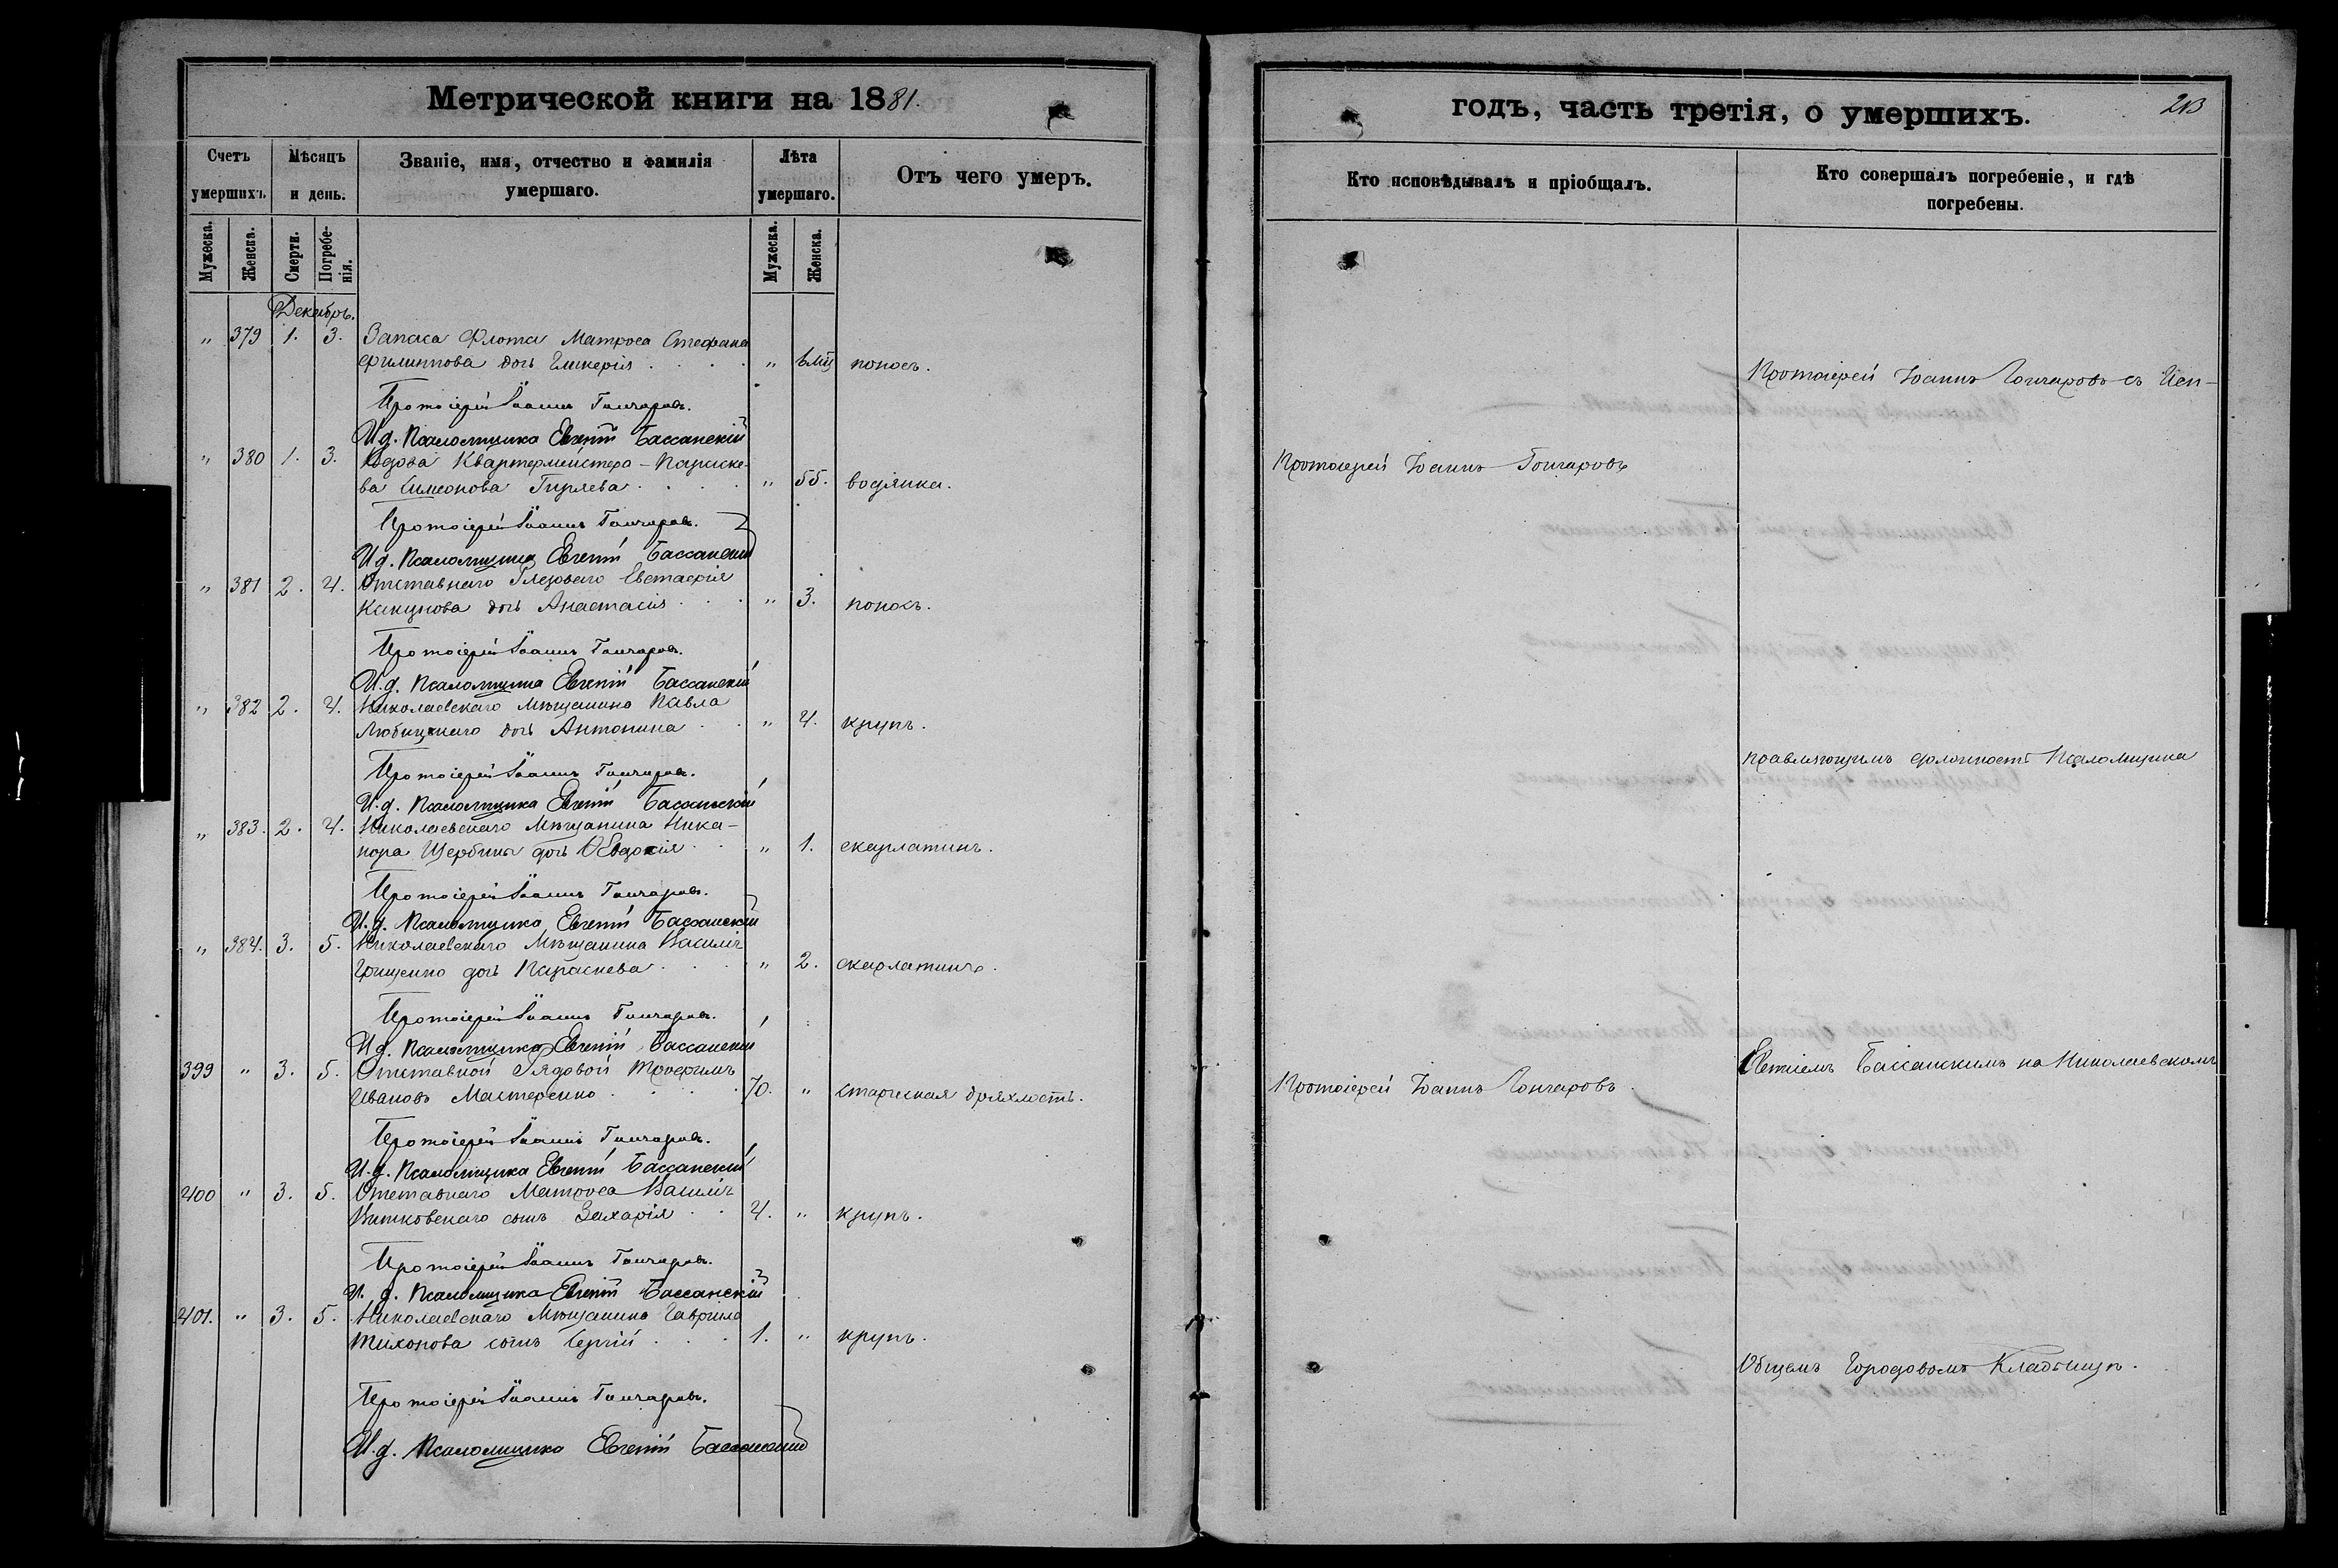 Метрической книги на 1881.
Счетъ умершихъ.
Мѣсяцъ и день.
Званіе, имя, отчество и фамилія умершаго.
Лѣта умершаго.
Отъ чего умеръ.
Мужеска. Женска. Смерти. Погребенія. Мужеска. Женска.
Декабрь.
" 379 1. 3. Запаса Флота Матроса Стефана
Филиппова дочь Гликерія . . . . "
поносъ.
Протоіерей Іоаннъ Гончаровъ.
И.д. Псаломщика Евгеній Бассанскій
" 380 1. 3. Вдова Квартермейстера - Параске-
ва Симеонова . . . . " 55. водянка.
Протоіерей Іоаннъ Гончаровъ.
И.д. Псаломщика Евгеній Бассанскій
" 381 2. 4. Отставнаго Рядоваго Евстафія
дочь Анастасія . . . " 3. поносъ.
Протоіерей Іоаннъ Гончаровъ.
И.д. Псаломщика Евгеній Бассанскій
" 382 2. 4. Николаевскаго Мѣщанина Павла
Любицкаго дочь Антонина . . " 4. крупъ.
Протоіерей Іоаннъ Гончаровъ.
И.д. Псаломщика Евгеній Бассанскій
" 383. 2. 4. Николаевскаго Мѣщанина Ника-
нора Щербины дочь Евдокія . . " 1. скарлатинъ.
Протоіерей Іоаннъ Гончаровъ.
И.д. Псаломщика Евгеній Бассанскій
" 384. 3. 5. Николаевскаго Мѣщанина Василія
Грищенко дочь Параскева . . . " 2. скарлатинъ.
Протоіерей Іоаннъ Гончаровъ.
И.д. Псаломщика Евгеній Бассанскій
399 " 3. 5. Отставной Рядовой Трофимъ
Ивановъ Мастеренко . . . . 70. " старческая дряхлость.
Протоіерей Іоаннъ Гончаровъ.
И.д. Псаломщика Евгеній Бассанскій
400 " 3. 5. Отставнаго Матроса Василія
Витковскаго сынъ Захарія . . 4. " крупъ.
Протоіерей Іоаннъ Гончаровъ.
И.д. Псаломщика Евгеній Бассанскій
401. " 3. 5. Николаевскаго Мѣщанина Гавріила
Тихонова сынъ Сергій . . . 1. " крупъ.
Протоіерей Іоаннъ Гончаровъ.
И.д. Псаломщика Евгеній Бассанскій
годъ, часть третія, о умершихъ.
213
Кто исповѣдывалъ и пріобщалъ.
Кто совершалъ погребеніе, и гдѣ погребены.
Протоіерей Іоаннъ Гончаровъ съ Исп-
Протоіерей Іоаннъ Гончаровъ
правляющимъ должность Псаломщика
Евгеніемъ Бассанскимъ на Николаевскомъ
Протоіерей Іоаннъ Гончаровъ.
Общемъ Городовомъ Кладбищѣ.